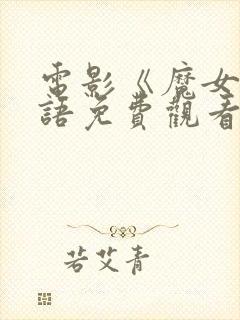 電影《魔女
語免費觀看
若艾青